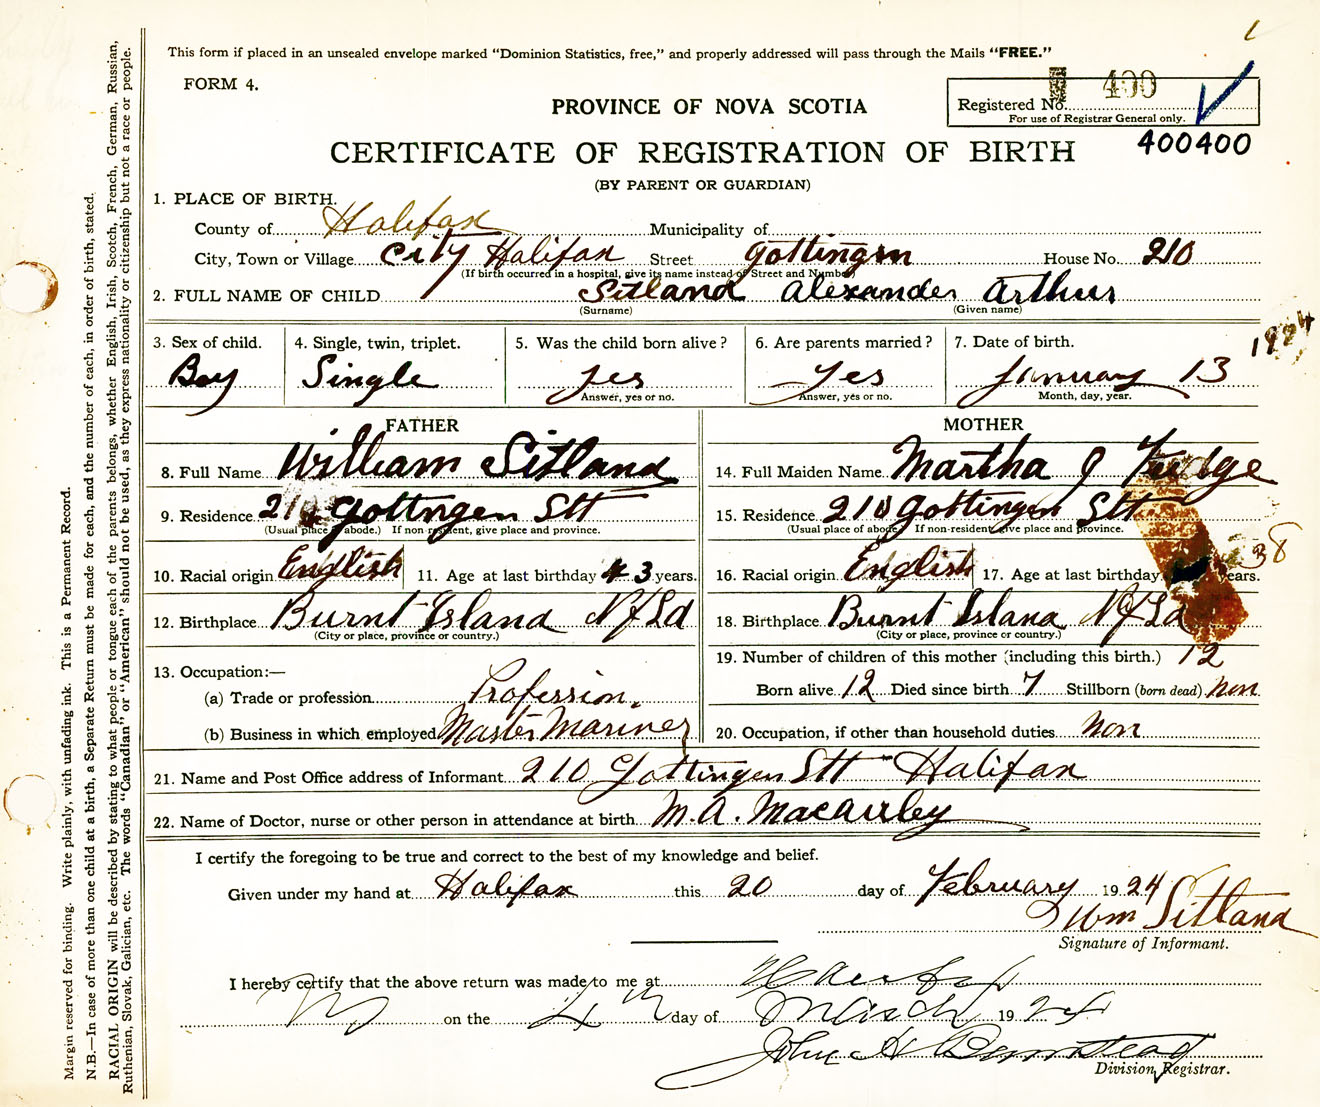 This form if placed in an unsealed envelope marked "Dominion Statistics, free," and properly addressed will pass through the Mails "FREE."
FORM 4.
400
PROVINCE OF NOVA SCOTIA
Registered No.
For use of Registrar General only.
400400
CERTIFICATE OF REGISTRATION OF BIRTH
(BY PARENT OR GUARDIAN)
1. PLACE OF BIRTH.
County of Halifax Municipality of
City, Town or Village City Halifax Street Gottingen House No. 210
(If birth occurred in a hospital, give its name instead of Street and Number)
2. FULL NAME OF CHILD Sitland Alexander Arthur
(Surname) (Given name)
3. Sex of child. 4. Single, twin, triplet. 5. Was the child born alive? 6. Are parents married? 7. Date of birth. 1924
Boy Single yes yes January 13
Answer, yes or no. Answer, yes or no. Month, day, year.
FATHER
8. Full Name William Sitland
9. Residence 210 Gottngen Stt
(Usual place of abode.) If non-resident, give place and province.
10. Racial origin English 11. Age at last birthday 43 years.
12. Birthplace Burnt Island Nfld
(City or place, province or country.)
13. Occupation:—
(a) Trade or profession Profession.
(b) Business in which employed Master Mariner
MOTHER
14. Full Maiden Name Martha J Fudge
15. Residence 210 Gottingen Stt
(Usual place of abode) If non-resident give place and province.
16. Racial origin English 17. Age at last birthday 38 years.
18. Birthplace Burnt Island Nfld
(City or place, province or country.)
19. Number of children of this mother (including this birth.) 12
Born alive 12 Died since birth 7 Stillborn (born dead) non
20. Occupation, if other than household duties non
21. Name and Post Office address of Informant 210 Gottingen Stt Halifax
22. Name of Doctor, nurse or other person in attendance at birth M. A. Macaulay
I certify the foregoing to be true and correct to the best of my knowledge and belief.
Given under my hand at Halifax this 20 day of February 1924
Wm Sitland
Signature of Informant.
I hereby certify that the above return was made to me at Halifax
on the 4th day of March 1924
John H
Division Registrar.
Margin reserved for binding. Write plainly, with unfading ink. This is a Permanent Record.
N.B.—In case of more than one child at a birth, a Separate Return must be made for each, and the number of each, in order of birth, stated.
RACIAL ORIGIN will be described by stating to what people or tongue each of the parents belongs, whether English, Irish, Scotch, French, German, Russian,
Ruthenian, Slovak, Galician, etc. The words "Canadian" or "American" should not be used, as they express nationality or citizenship but not a race or people.